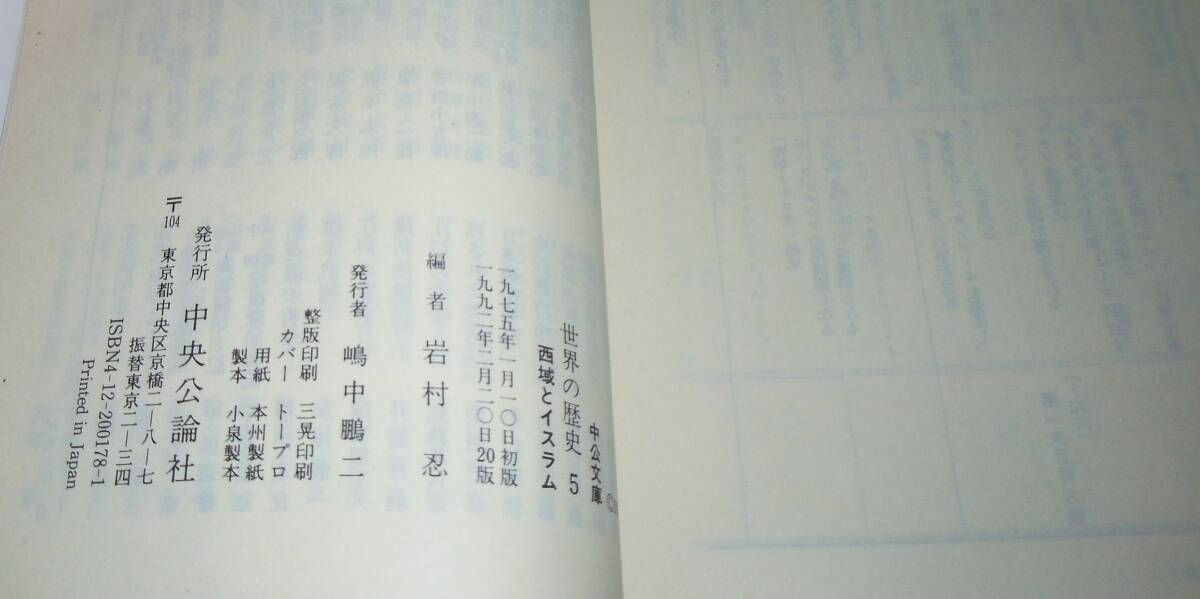 中公文庫
世界の歴史 5
西域とイスラム
一九七五年一月一〇日初版
一九九二年二月二〇日20版
編者 岩村 忍
発行者 嶋中鵬二
整版印刷 三晃印刷
カバー トープロ
用紙 本州製紙
製本 小泉製本
発行所 中央公論社
〒104 東京都中央区京橋二—八—七
振替東京二—三四
ISBN4-12-200178-1
Printed in Japan